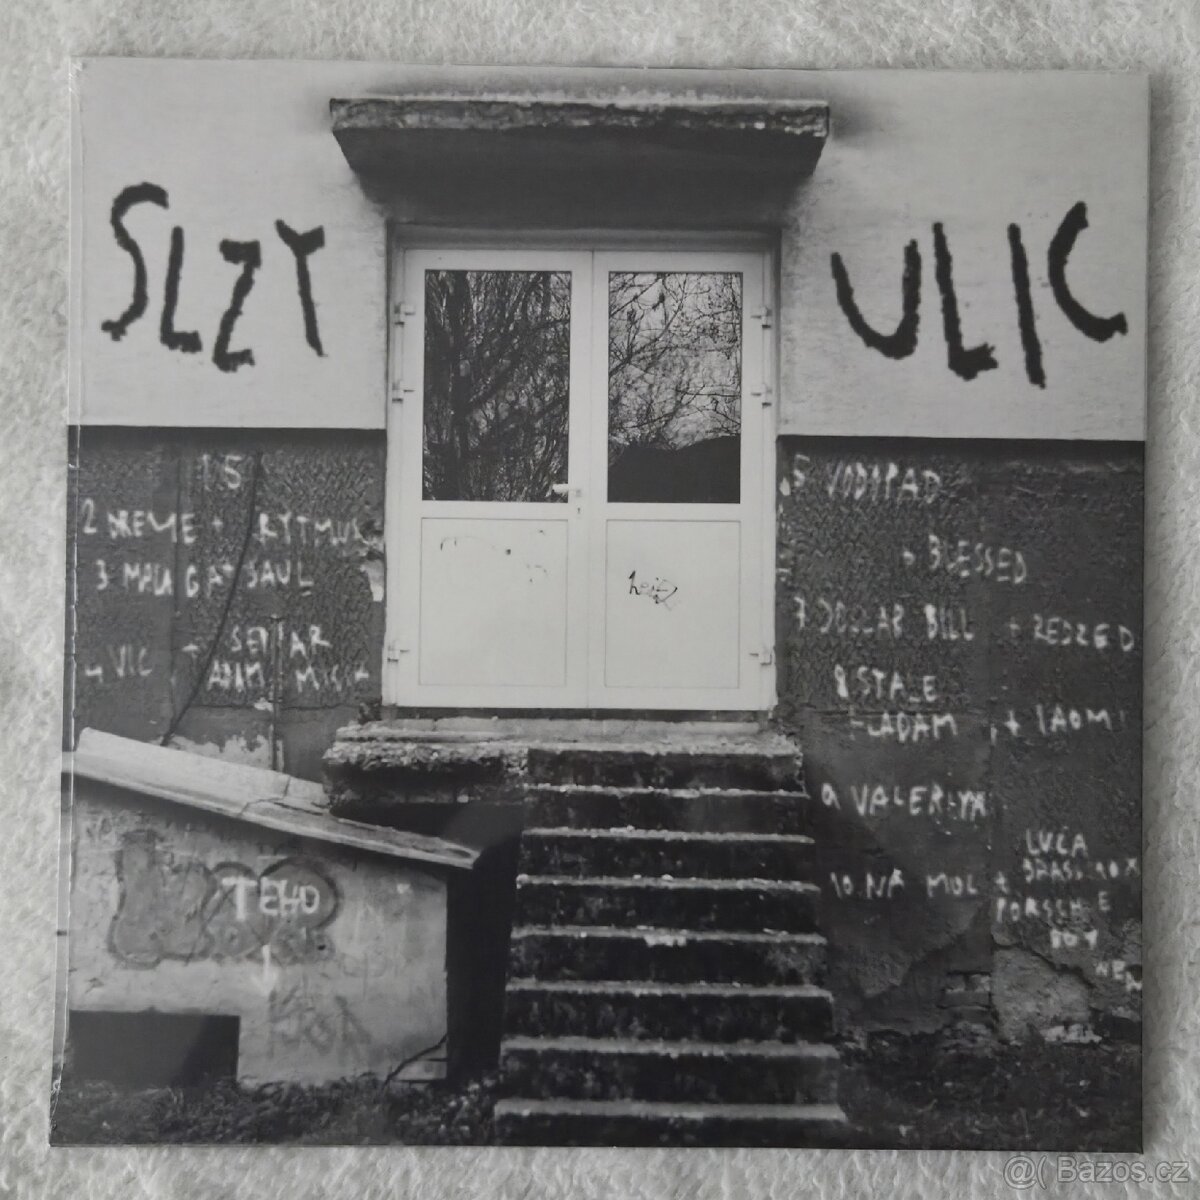 SLZY ULIC
1 5
2 DREME + RYTMUS
3 MALA GA + SAUL
4 VIC + SEPAR
ADAM MISIK
5 VODOPAD
+ BLESSED
7 DOLLAR BILL + REDZED
8 STALE
+ ADAM, +
9 VALERIYM
10 NA MOL + LUCA
BRASI 10X
PORSCHE
BOY
TEHO
@( Bazos.cz